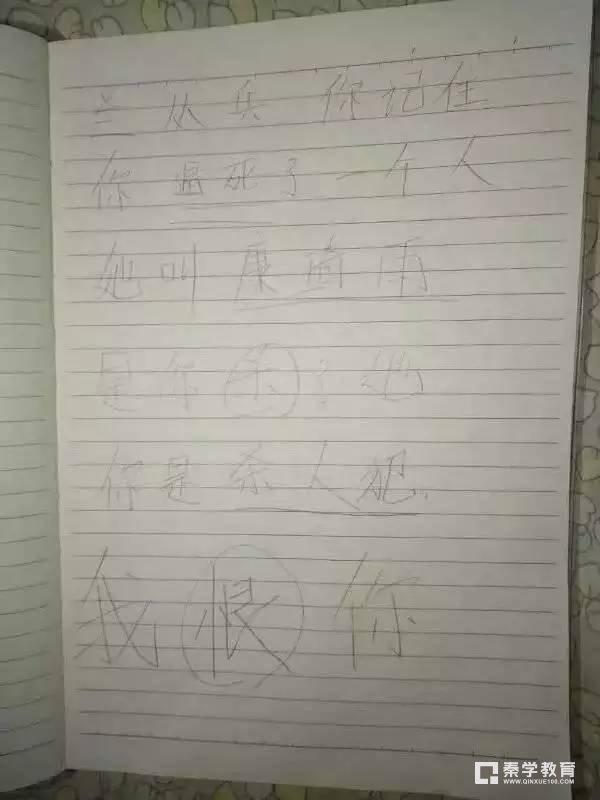 兰从兵 你记住
你逼死了一个人
她叫康雨
是你杀了她
你是杀人犯.
我恨你
秦学教育
WWW.QINXUE100.COM